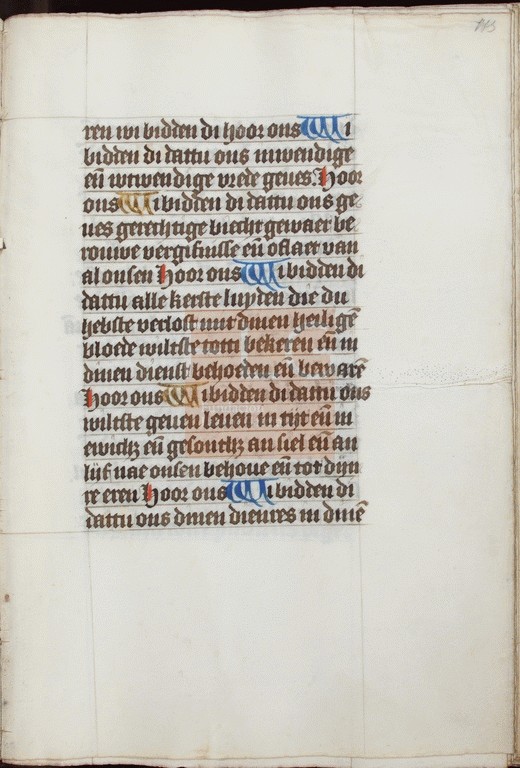 113
ren wi bidden di hoor ons Wi
bidden di dattu ons inwendige
eñ wtwendige vrede geues Hoor
ons Wi bidden di dattu ons ge
ues gerechtige biecht gewaer be
rouwe vergifnisse eñ oflaet van
al onsen Hoor ons Wi bidden di
dattu alle kerste luyden die du
hebste verlost mit dinen heiligē
bloede wiltste totti bekeren eñ in
dinen dienst behoeden eñ bewarē
Hoor ons Wi bidden di dattu ons
wiltste geuen leuen in tijt eñ in
ewich eñ gesont an siel eñ an
lijf nae onsen behoue eñ tot dijn
re eren Hoor ons Wi bidden di
dattu ons dinen dienres in dinē